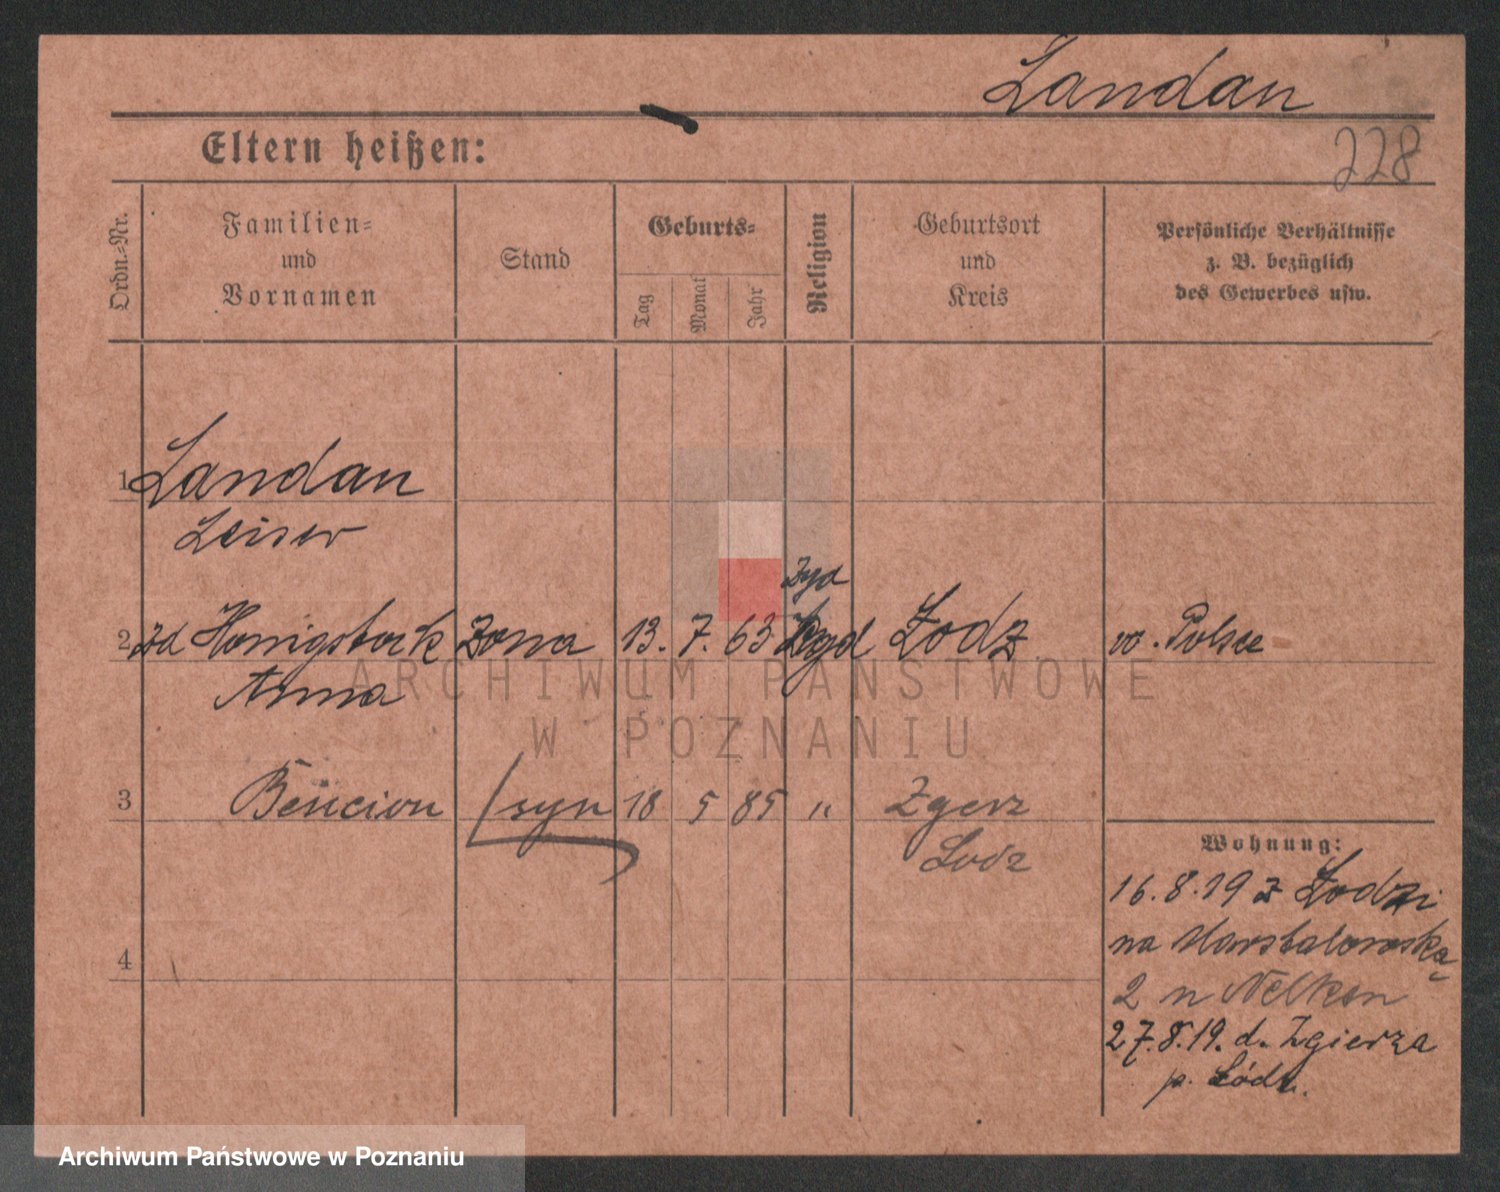 Landau
Eltern heißen:
228
Ordn.-Nr.
Familien-
und
Vornamen
Stand
Geburts-
Tag
Monat
Jahr
Religion
Geburtsort
und
Kreis
Persönliche Verhältnisse
z. B. bezüglich
des Gewerbes usw.
1 Landau
Leiser
żyd
2 zd Honigstock żona 13. 7. 63 żyd Łodz w. Polsce
Anna
3 Bencion syn 18 5 85 " Zgerz
Lodz
Wohnung:
16.8.19 z Łodzi
na
4
2 n Nelken
27.8.19. d. Zgierza
p. Łódź.
ARCHIWUM PAŃSTWOWE
W POZNANIU
Archiwum Państwowe w Poznaniu